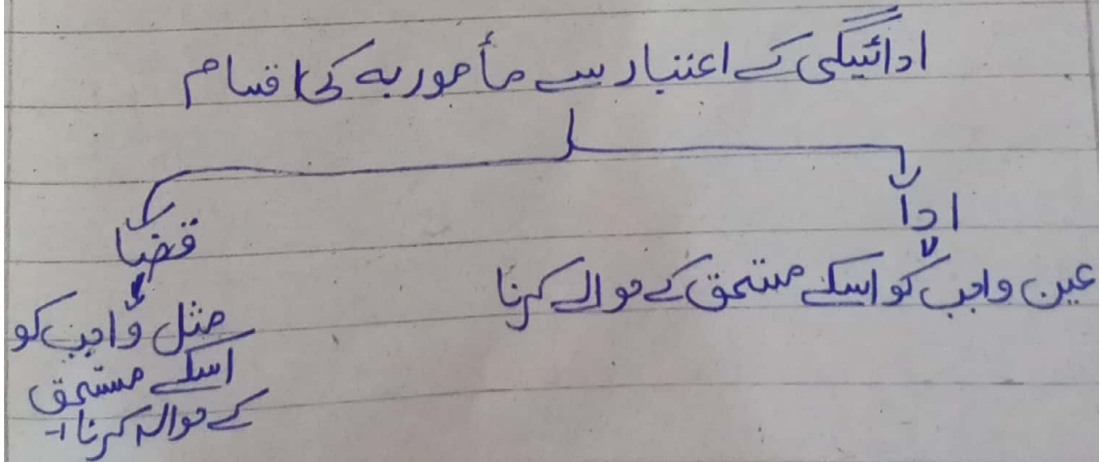 ادائیگی کے اعتبار سے مأمور بہ کی اقسام
ادا
عین واجب کو اسکے مستحق کے حوالے کرنا
قضا
مثل واجب کو
اسکے مستحق
کے حوالہ کرنا۔